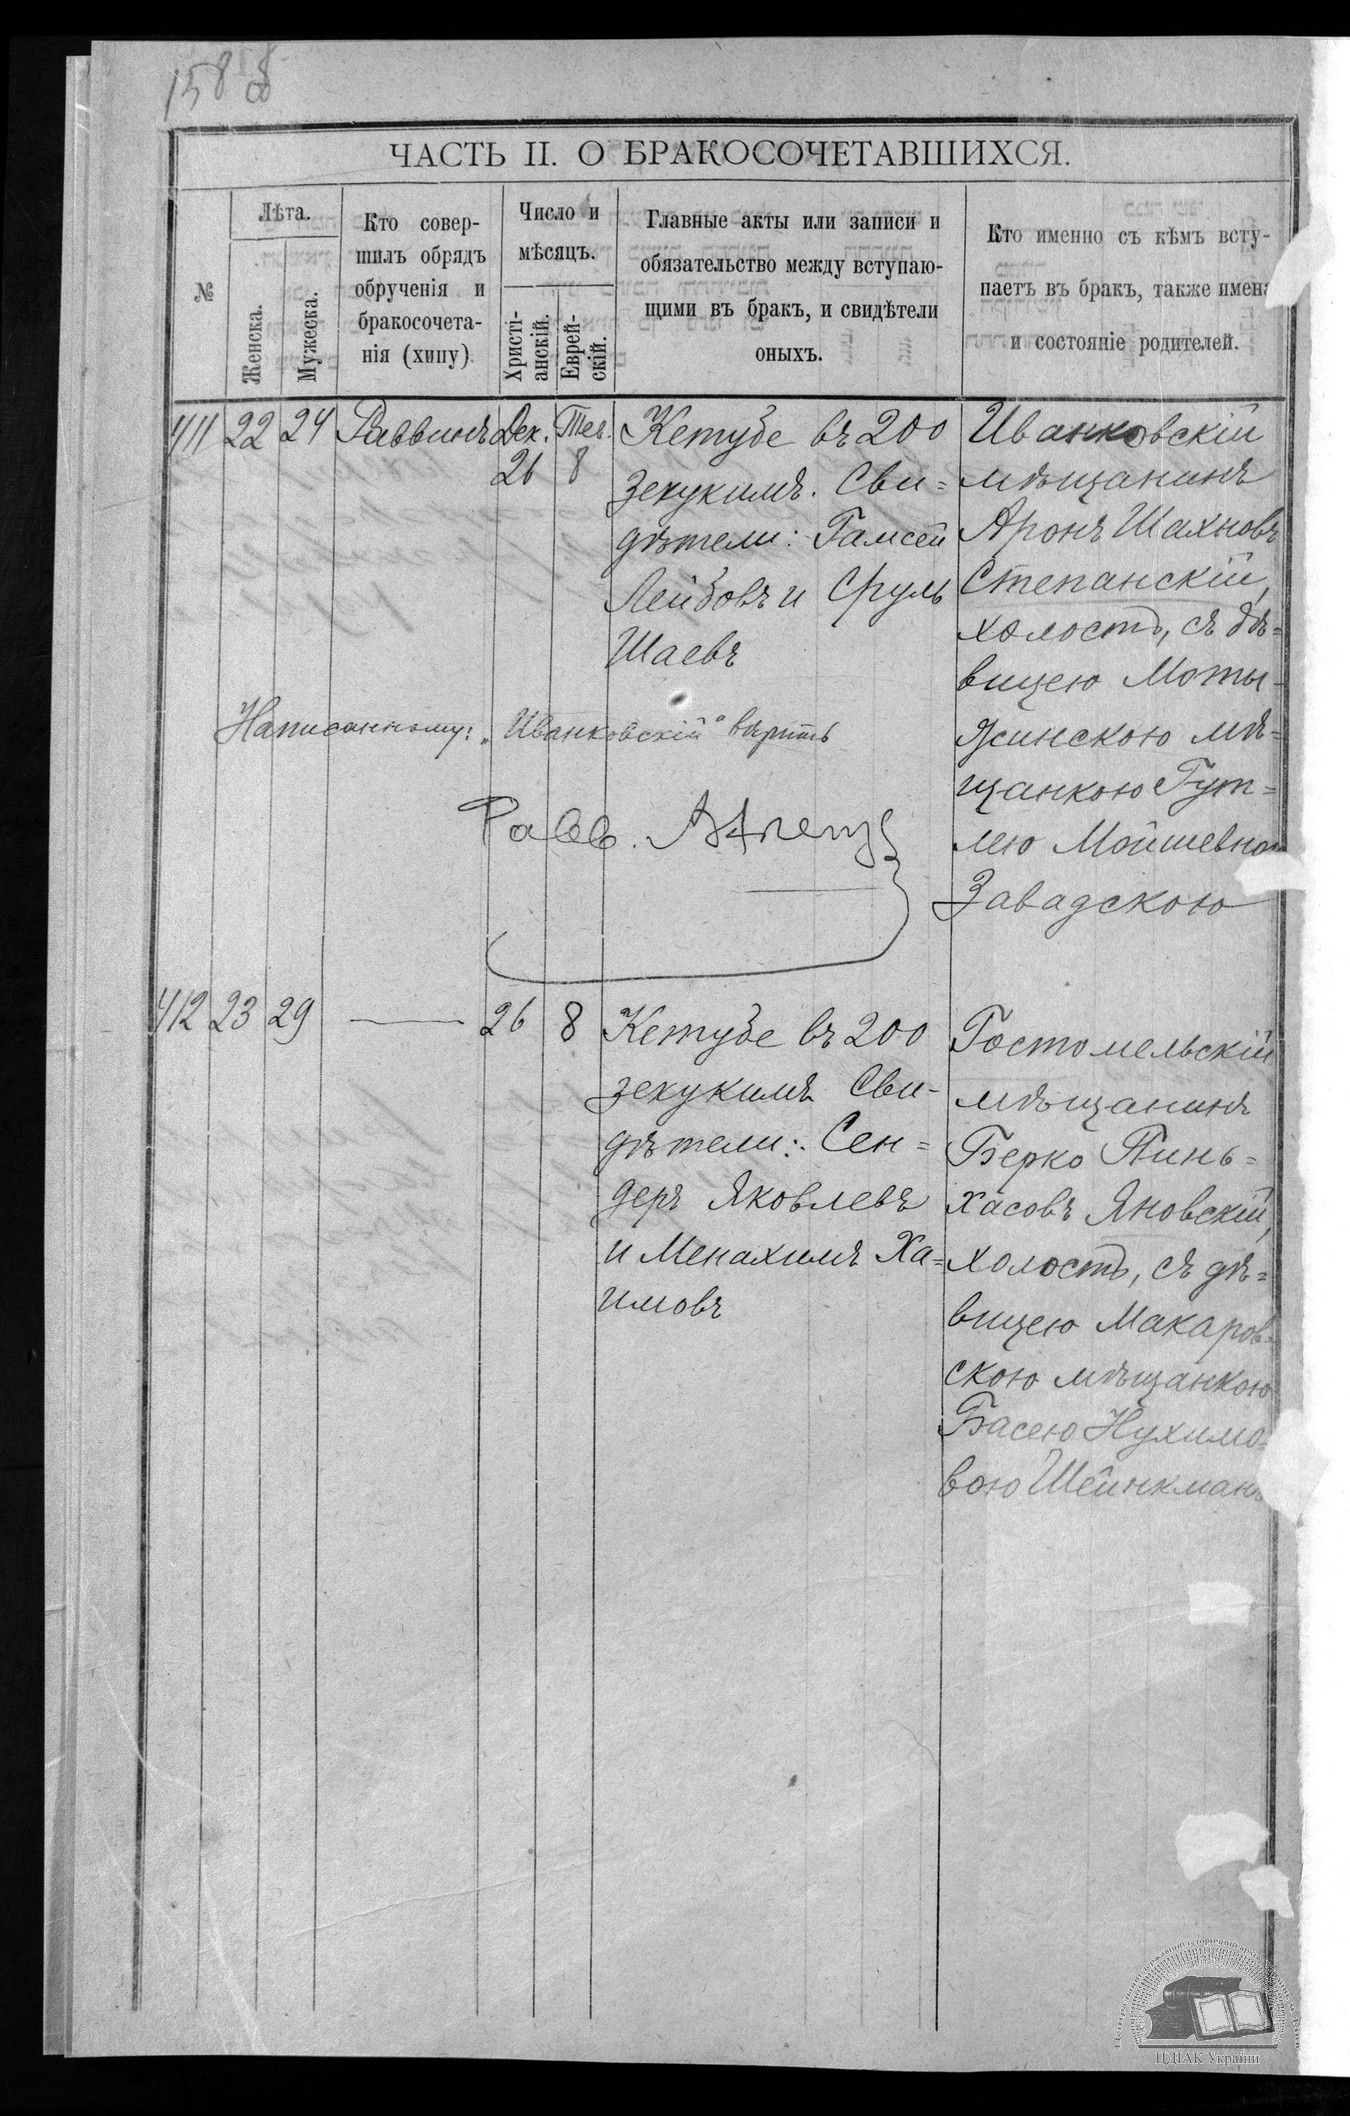 158
ЧАСТЬ II. О БРАКОСОЧЕТАВШИХСЯ.
№
Лѣта.
Женска.
Мужеска.
Кто совер-
шилъ обрядъ
обрученія и
бракосочета-
нія (хипу)
Число и
мѣсяцъ.
Христі-
анскій.
Еврей-
скій.
Главные акты или записи и
обязательство между вступаю-
щими въ бракъ, и свидѣтели
оныхъ.
Кто именно съ кѣмъ всту-
паетъ въ бракъ, также имена
и состояніе родителей.
411 22 24 Раввинъ Дек. Тев.
26 8
Кетубе въ 200
зекукимъ. Сви=
дѣтели:
Лейбовъ и Сруль
Шаевъ
Иванковскій
мѣщанинъ
Аронъ Шахновъ
Степанскій,
холостъ, съ дѣ=
вицею Моты-
жинскою мѣ=
щанкою Гут=
лею Мойшевною
Завадскою
Написанному: „Иванковскій" вѣрить
Равв.
412 23 29 — 26 8
Кетубе въ 200
зекукимъ Сви-
дѣтели: Сен=
деръ Яковлевъ
и Менахимъ Ха=
имовъ
Гостомельскій
мѣщанинъ
Берко Пинь=
хасовъ Яновскій,
холостъ, съ дѣ=
вицею Макаров-
скою мѣщанкою
Басею Нухимо-
вою Шейнкманъ
ЦДІАК України